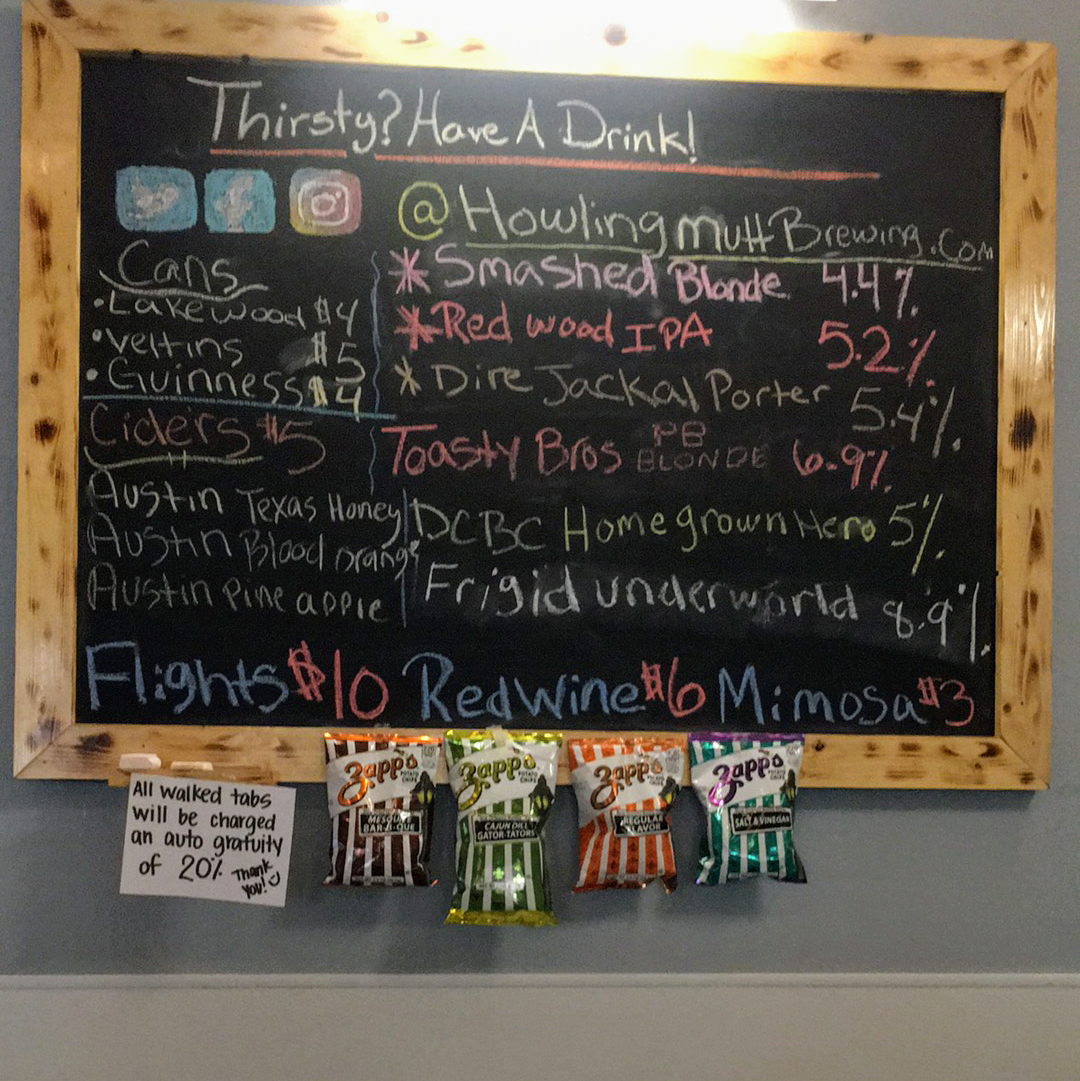 Thirsty? Have A Drink!
@HowlingmuttBrewing.Com
Cans
•Lakewood $4
•Veltins $5
•Guinness $4
Ciders $5
Austin Texas Honey
Austin Blood Orange
Austin Pineapple
*Smashed Blonde 4.4%
*Redwood IPA 5.2%
*Dire Jackal Porter 5.4%
Toasty Bros PB BLONDE 6.9%
DCBC Homegrown Hero 5%
Frigid underworld 8.9%
Flights $10 Red Wine $6 Mimosa $3
All walked tabs
will be charged
an auto gratuity
of 20% Thank
You!
Zapp's
POTATO CHIPS
MESQUITE
BAR-B-QUE
Zapp's
POTATO CHIPS
CAJUN DILL
GATOR-TATORS
Zapp's
POTATO CHIPS
REGULAR
FLAVOR
Zapp's
POTATO CHIPS
SALT & VINEGAR